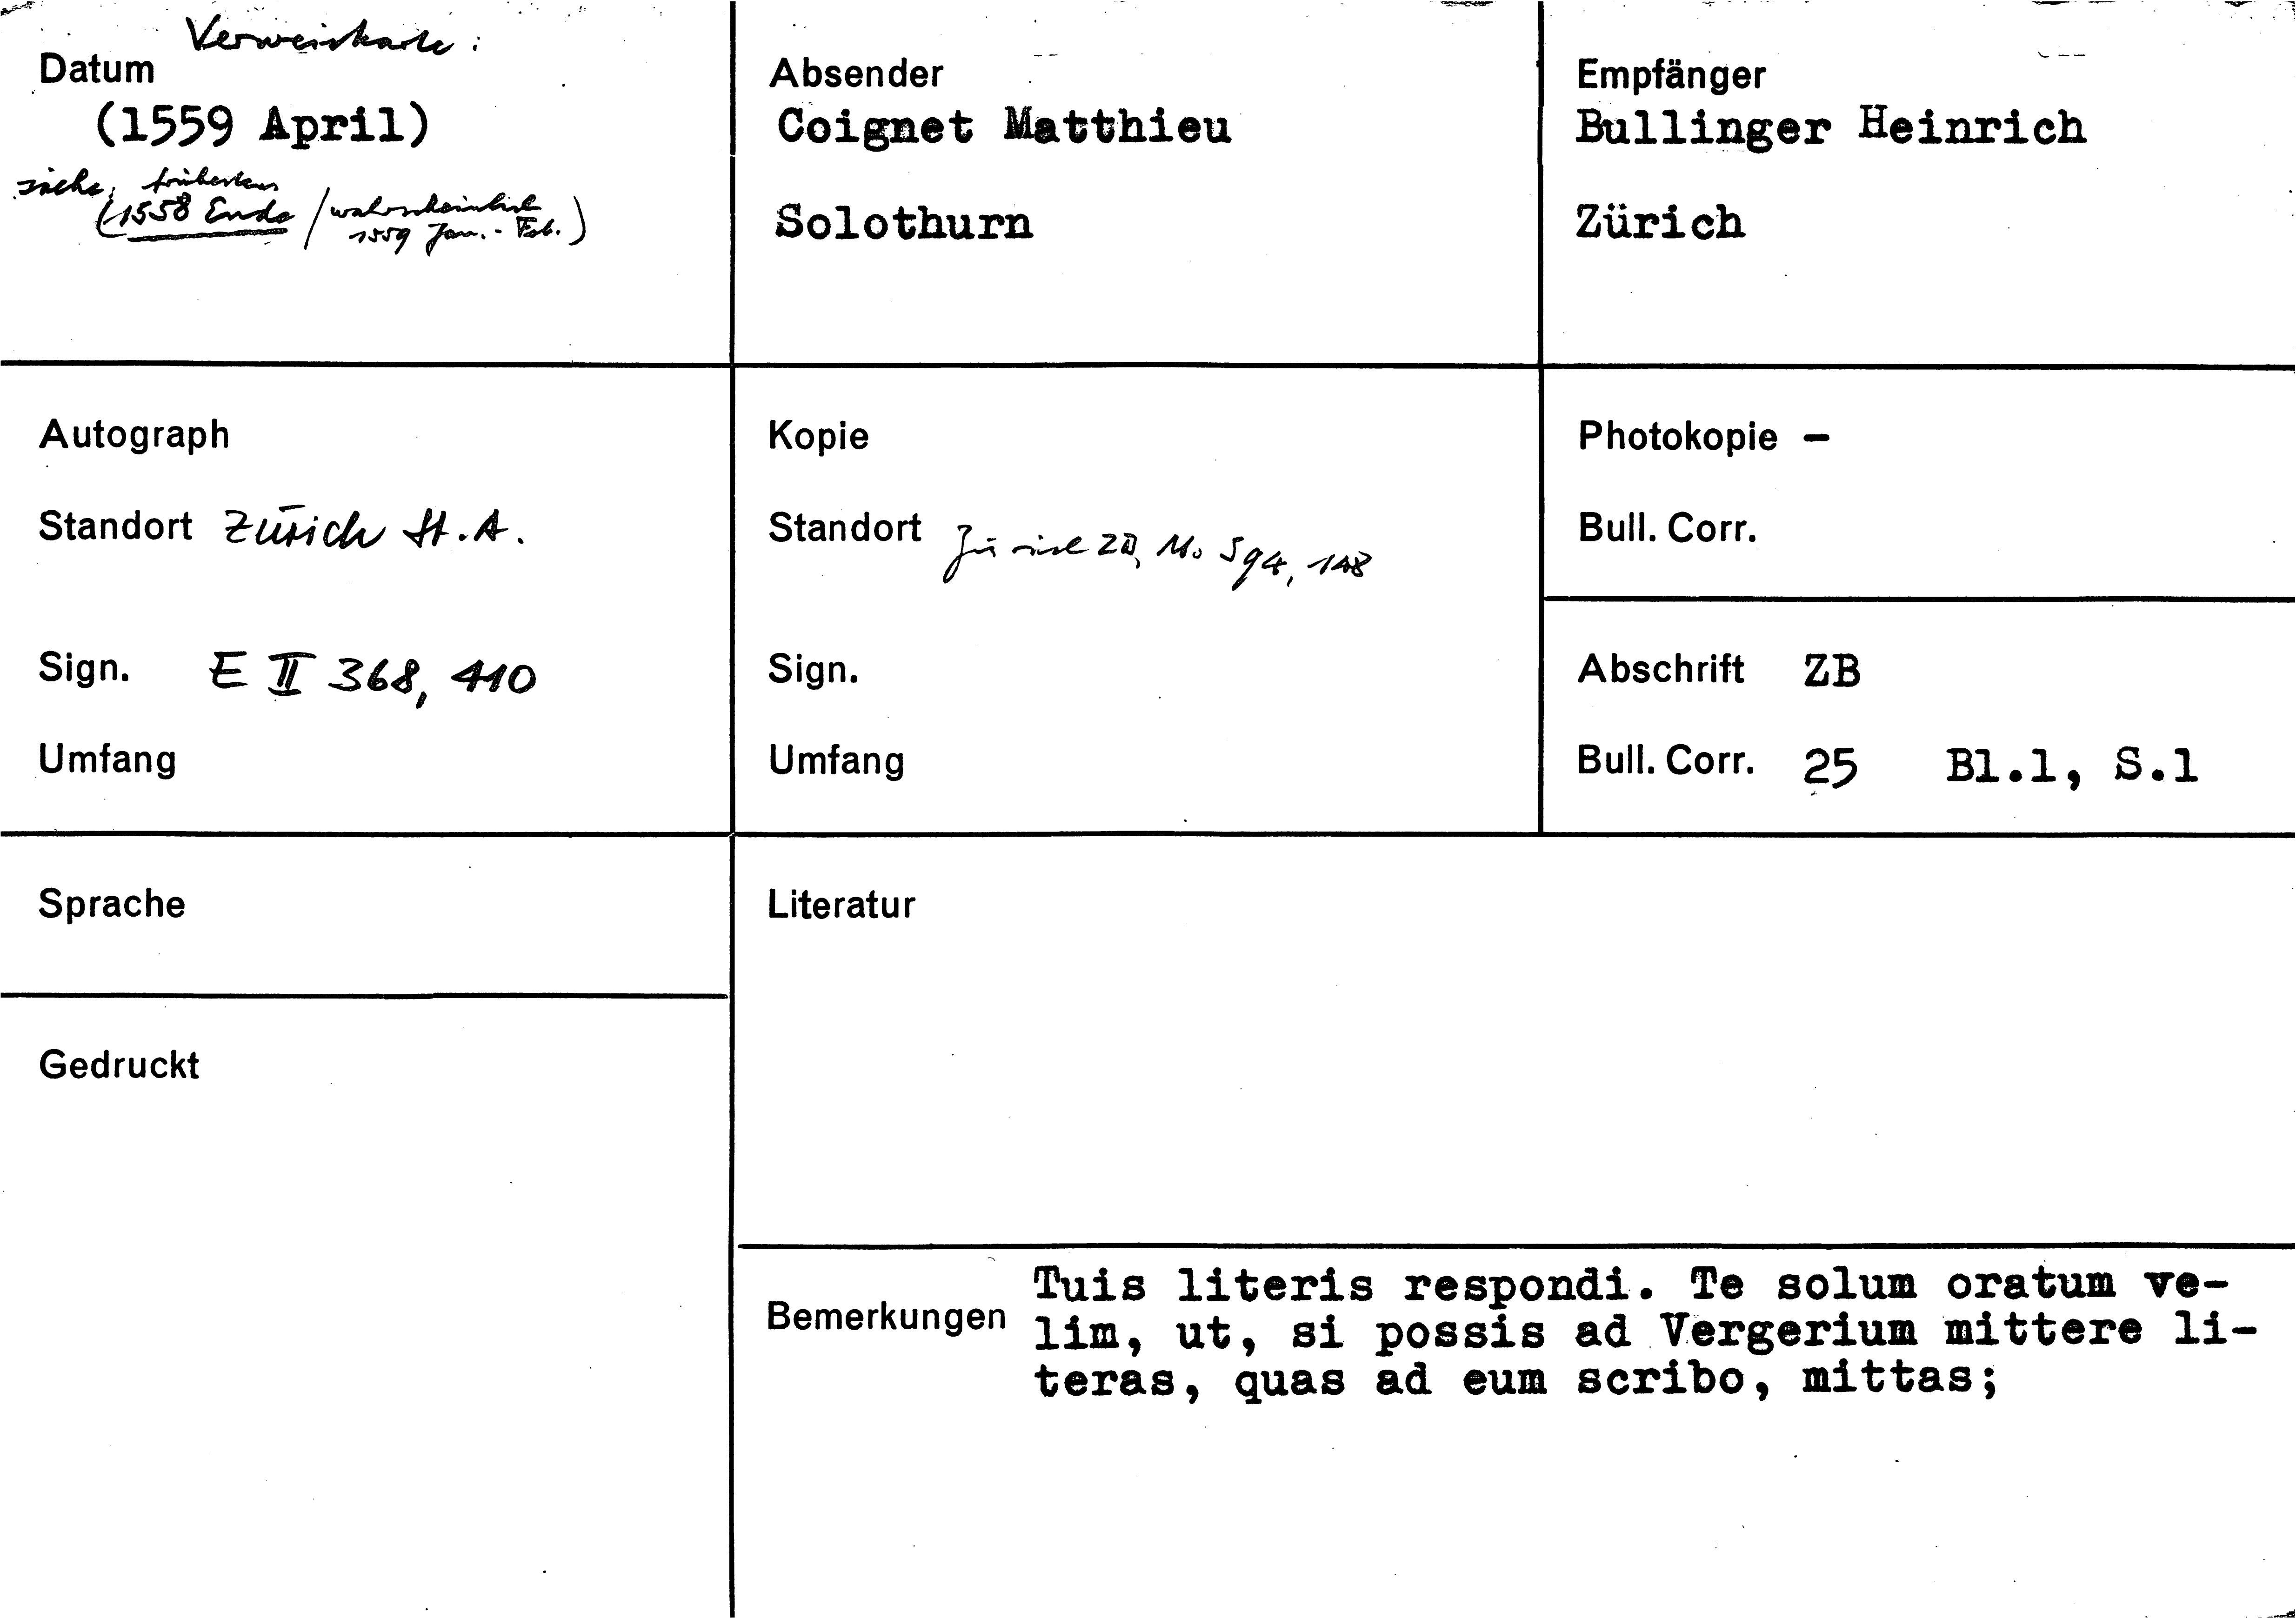 Verweiskarte:
Datum
(1559 April)
siehe, frühestens
(1558 Ende / wahrscheinlich
1559 Jan.-Feb.)
Absender
Coignet Matthieu
Solothurn
Empfänger
Bullinger Heinrich
Zürich
Autograph
Standort Zürich St.A.
Sign. E II 368, 410
Umfang
Kopie
Standort Zürich ZB, Ms S 94, 148
Sign.
Umfang
Photokopie –
Bull. Corr.
Abschrift ZB
Bull. Corr. 25 Bl.1, S.1
Sprache
Literatur
Gedruckt
Bemerkungen
Tuis literis respondi. Te solum oratum ve-
lim, ut, si possis ad Vergerium mittere li-
teras, quas ad eum scribo, mittas;